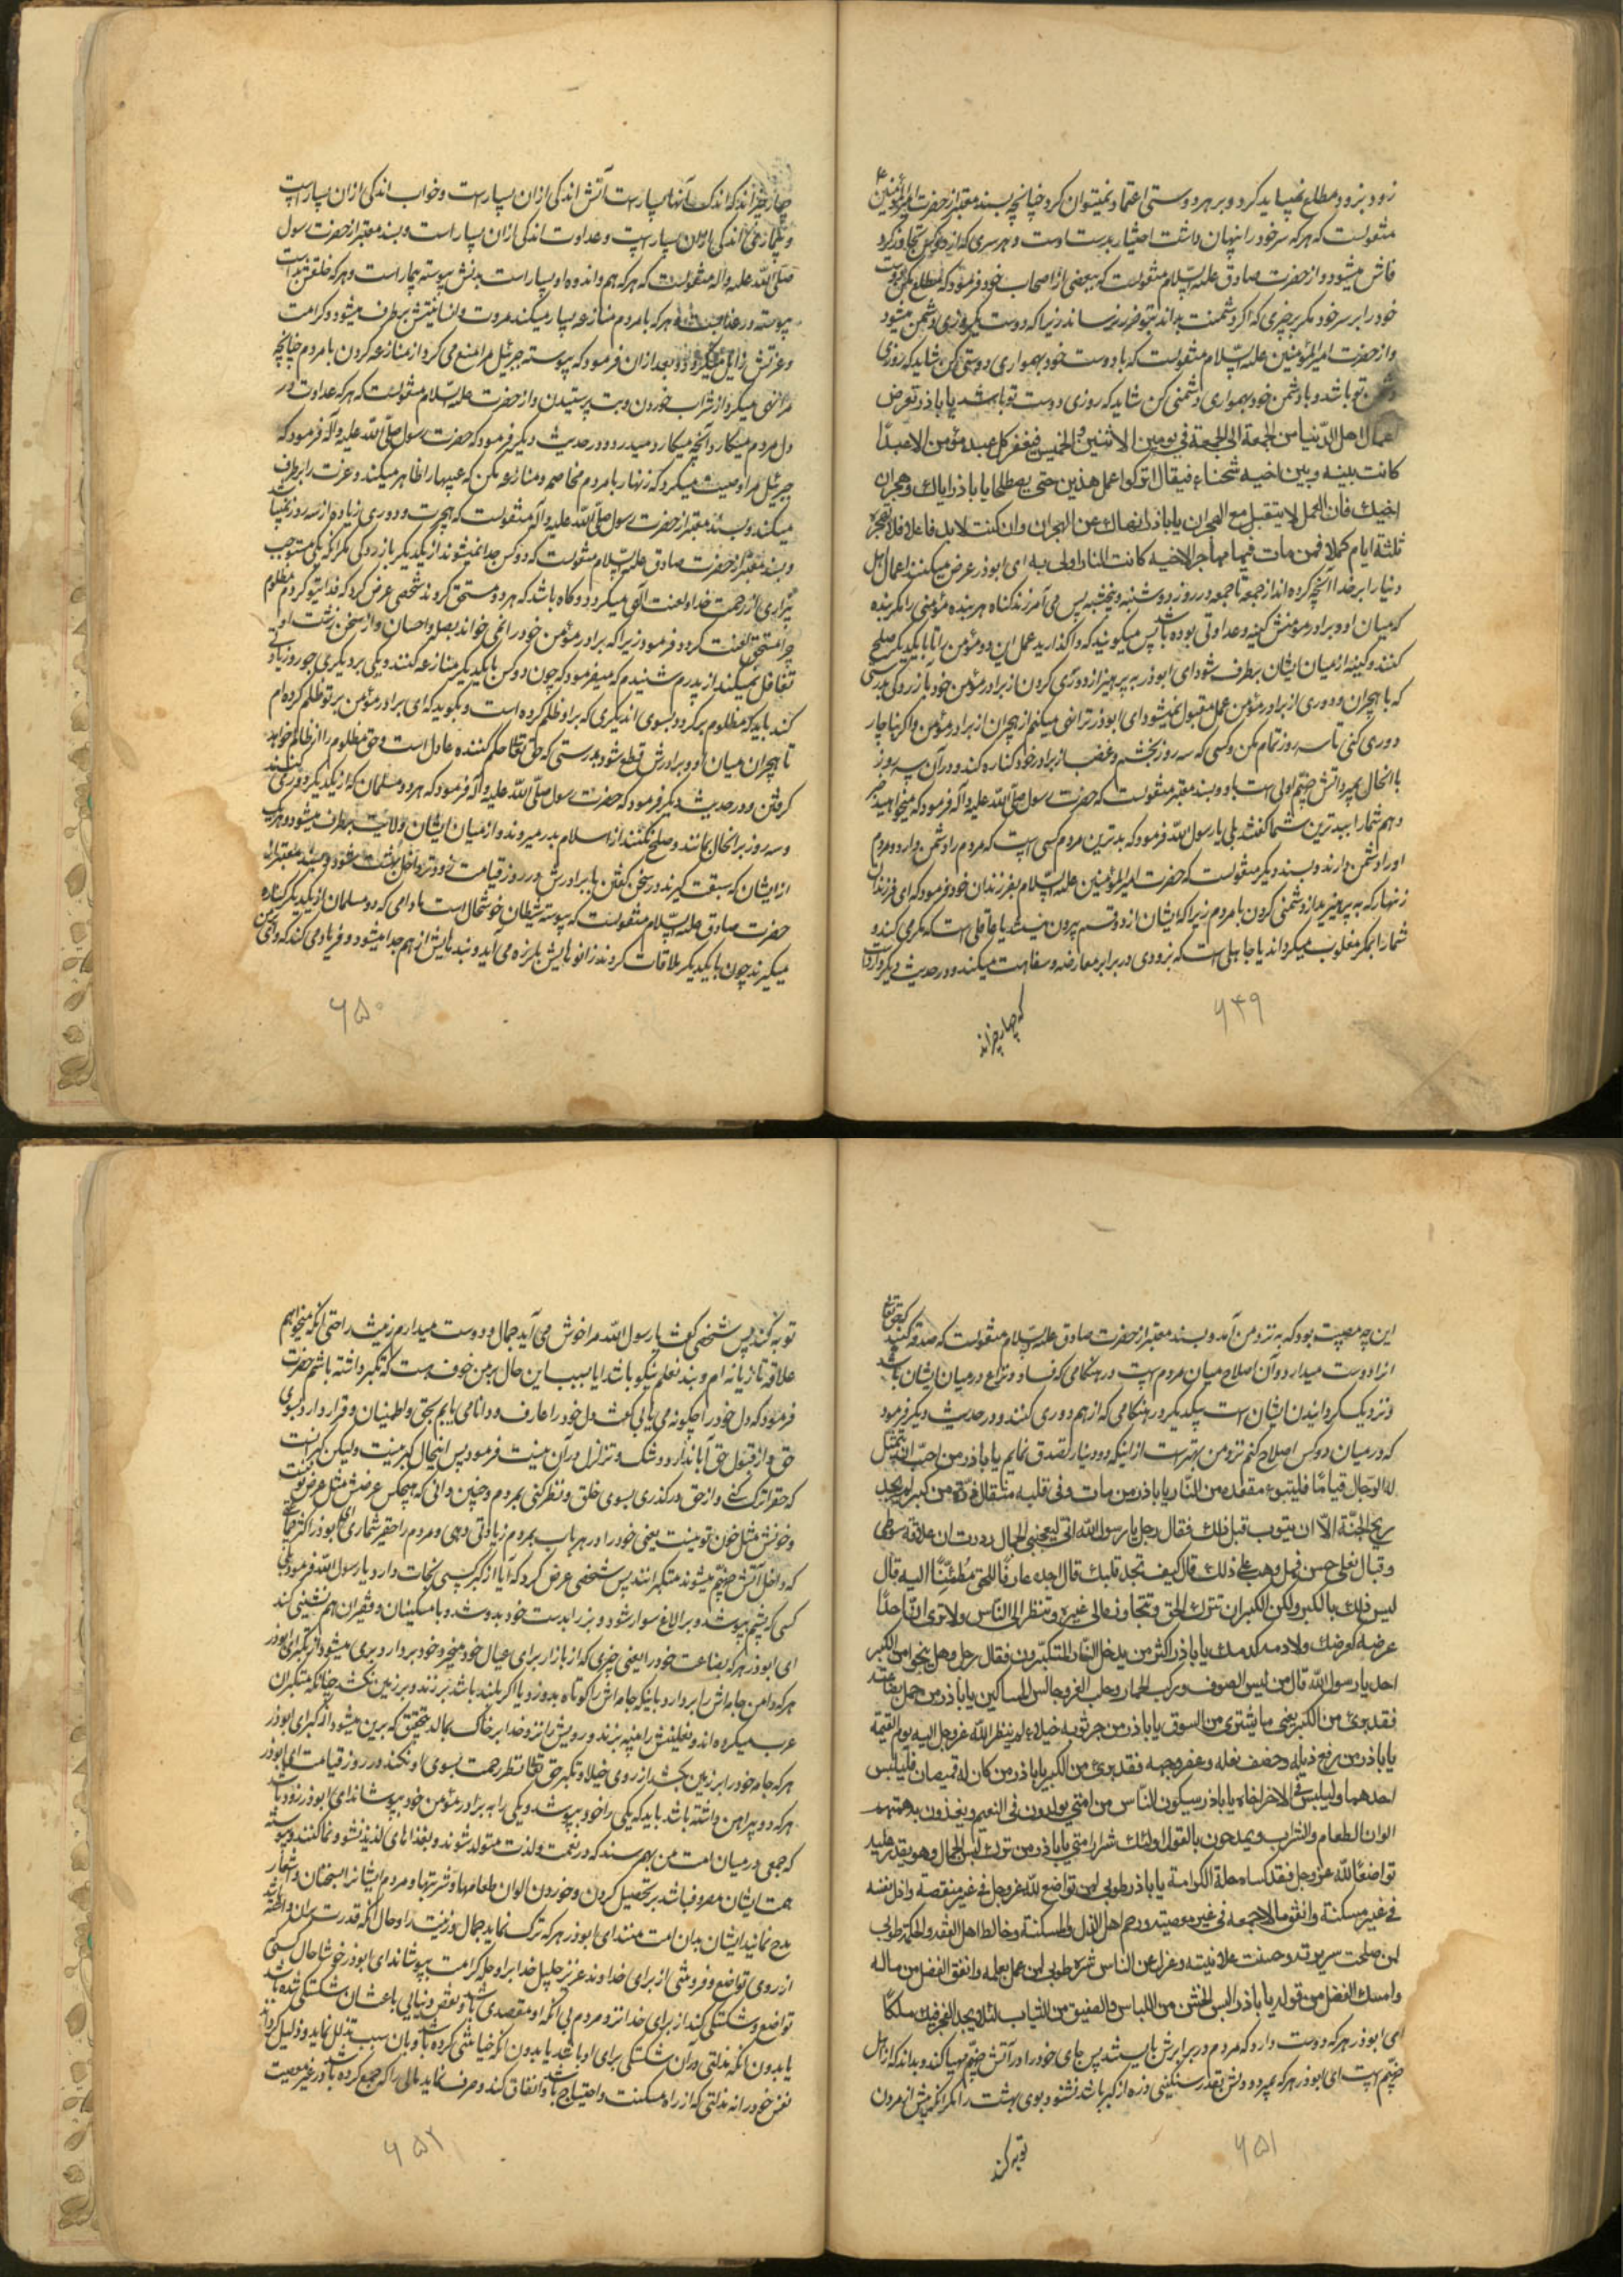 زود بزود مطلع نمیباید کرد و بر هر دوستی اعتماد نمیتوان کرد چنانچه بسند معتبر از حضرت امیرالمؤمنین ع
منقولست که هر که سر خود را پنهان داشت اختیار بدست اوست و هر سری که از دو کس تجاوز کرد
فاش میشود و از حضرت صادق علیه السلام منقولست که ببعضی از اصحاب خود فرمود که مطلع مکن دوست
خود را بر سر خود مگر بر چیزی که اگر دشمنت بداند بتو ضرر نرساند زیرا که دوست یک روزی دشمن میشود
و از حضرت امیرالمؤمنین علیه السلام منقولست که با دوست خود بهمواری دوستی کن شاید که روزی
دشمن تو باشد و با دشمن خود بهمواری دشمنی کن شاید که روزی دوست تو باشد یا باذر تعرض
اعمال اهل الدنیا من الجمعة الی الجمعة فی یومین الاثنین و الخمیس فیغفر کل عبد مؤمن الا عبدا
کانت بینه و بین اخیه شحناء فیقال اترکوا عمل هذین حتی یصطلحا یا باذر ایاک و هجران
اخیک فان العمل لا یتقبل مع الهجران یا باذر انهاک عن الهجران وان کنت لا بد فاعلا فلا تهجره
ثلثة ایام کملا فمن مات فیها مهاجرا لاخیه کانت النار اولی به ای ابوذر عرض میکنند اعمال اهل
دنیا را بر خدا آنچه کرده اند از جمعه تا جمعه در روز دوشنبه و پنجشنبه پس می آمرزند گناه هر بنده مؤمنی را مگر بنده
که میان او و برادر مؤمنش کینه و عداوتی بوده باشد پس میگویند که واگذارید عمل این دو مؤمن را تا با یکدیگر صلح
کنند و کینه از میان ایشان برطرف شود ای ابوذر به پرهیز از دوری کردن از برادر مؤمن خود بآزردگی بدرستی
که با هجران و دوری از برادر مؤمن عمل مقبول نمیشود ای ابوذر ترا نهی میکنم از هجران از برادر مؤمن و اگر ناچار
دوری کنی تا سه روز تمام مکن و کسی که سه روز بخشم و غضب از برادر خود کناره کند و در آن سه روز
با انحال بمیرد آتش جهنم اولی است باو و بسند معتبر منقولست که حضرت رسول صلی الله علیه وآله فرمود که میخواهید خبر
دهم شما را ببدترین شما گفتند بلی یا رسول الله فرمود که بدترین مردم کسی است که مردم را دشمن دارد و مردم
او را دشمن دارند و بسند دیگر منقولست که حضرت امیرالمؤمنین علیه السلام بفرزندان خود فرمود که ای فرزندان
زنهار که به پرهیزید از دشمنی کردن با مردم زیرا که ایشان از دو قسم بیرون نیستند یا عاقلی است که مکر می کند و
شما را بمکر مغلوب میگرداند یا جاهلی است که بزودی در برابر معارضه و سفاهت میکند و در حدیث دیگر وارداست
که چهار چیزاند
۶۴۹
چهار چیزاند که اندک آنها بسیار است آتش اندکی از ان بسیار است و خواب اندکی از ان بسیار است
و بیماری اندکی از ان بسیار است و عداوت اندکی از ان بسیار است و بسند معتبر از حضرت رسول
صلی الله علیه واله منقولست که هر که هم و اندوه او بسیار است بدنش پیوسته بیمار است و هر که خلقش بد است
پیوسته در عذاب است و هر که با مردم منازعه بسیار میکند مروت و انسانیتش برطرف میشود و کرامت
و عزتش زایل میگردد و بعد از ان فرمود که پیوسته جبرئیل مرا منع می کرد از منازعه کردن با مردم چنانچه
مرا نهی میکرد از شراب خوردن و بت پرستیدن و از حضرت علیه السلام منقولست که هر که عداوت در
دل مردم میکارد آنچه میکارد میدرود و در حدیث دیگر فرمود که حضرت رسول صلی الله علیه وآله فرمود که
جبرئیل مرا وصیت میکرد که زنهار با مردم مخاصمه و منازعه مکن که عیبها را ظاهر میکند و عزت را برطرف
میکند و بسند معتبر از حضرت رسول صلی الله علیه وآله منقولست که هجرت و دوری زیاده از سه روز نمیباشد
و بسند معتبر از حضرت صادق علیه السلام منقولست که دو کس جدا نمیشوند از یکدیگر بآزردگی مگر آنکه یکی مستوجب
بیزاری از رحمت خدا و لعنت الهی میگردد و گاه باشد که هر دو مستحق گردند شخصی عرض کرد که فدای تو گردم مظلوم
چرا مستحق لعنت گردد فرمود زیرا که برادر مؤمن خود را نمی خواند بصله و احسان و از سخن زشت او
تغافل نمیکند از پدرم شنیدم که میفرمود که چون دو کس با یکدیگر منازعه کنند و یکی بر دیگری جور و زیادتی
کند باید که مظلوم برگردد بسوی اندیگری که بر او ظلم کرده است و بگوید که ای برادر مؤمن بر تو ظلم کرده ام
تا هجران میان او و برادرش قطع شود بدرستی که حق تعالی حکم کننده عادل است و حق مظلوم را از ظالم خواهد
گرفتن و در حدیث دیگر فرمود که حضرت رسول صلی الله علیه وآله فرمود که هر دو مسلمان که از یکدیگر دوری کنند
و سه روز بر انحال بمانند و صلح نکنند از اسلام بدر میروند و از میان ایشان ولایت برطرف میشود و هر یک
از ایشان که سبقت گیرند در سخن گفتن با برادرش در روز قیامت زودتر داخل بهشت شود و بسند معتبر از
حضرت صادق علیه السلام منقولست که پیوسته شیطان خوشحال است مادامی که دو مسلمان از یکدیگر کناره
میگیرند چون با یکدیگر ملاقات کردند زانوهایش بلرزه می آید و بندهایش از هم جدا میشود و فریاد می کند که وای بر من
۶۵۰
این چه مصیبت بود که به نزد من آمد و بسند معتبر از حضرت صادق علیه السلام منقولست که صدقه که حق تعالی
انرا دوست میدارد آن اصلاح میان مردم است در هنگامی که فساد و نزاع در میان ایشان باشد
و نزدیک گردانیدن ایشان است بیکدیگر در هنگامی که از هم دوری کنند و در حدیث دیگر فرمود
که در میان دو کس اصلاح کنم نزد من بهتر است از اینکه دو دینار تصدق نمایم یا باذر من احب ان یتمثل
له الرجال قیاما فلیتبوء مقعده من النار یا باذر من مات و فی قلبه مثقال ذرة من کبر لم یجد
ریح الجنة الا ان یتوب قبل ذلک فقال رجل یا رسول الله انی لیعجبنی الجمال وددت ان علاقة سوطی
و قبال نعلی حسن فهل یرهب علی ذلک قال کیف تجد قلبک قال اجده عارفا للحق مطمئنا الیه قال
لیس ذلک بالکبر ولکن الکبر ان تترک الحق و تتجاوز الی غیره و تنظر الی الناس ولا تری ان احدا
عرضه کعرضک ولا دمه کدمک یا باذر اکثر من یدخل النار المتکبرون فقال رجل و هل ینجو من الکبر
احد یا رسول الله قال من لبس الصوف و رکب الحمار و حلب الغنز و جالس المساکین یا باذر من حمل بضاعته
فقد برئ من الکبر یعنی ما یشتری من السوق یا باذر من جر ثوبه خیلاء لم ینظر الله عز وجل الیه یوم القیمة
یا باذر من رفع ذیله و خصف نعله و عفر وجهه فقد برئ من الکبر یا باذر من کان له قمیصان فلیلبس
احدهما و لیلبس الاخر اخاه یا باذر سیکون الناس من امتی یولدون فی النعیم و یغذون به همتهم
الوان الطعام والشراب و یمدحون بالقول اولئک شرار امتی یا باذر من ترک لبس الجمال و هو یقدر علیه
تواضعا لله عز وجل فقد کساه حلة الکرامة یا باذر طوبی لمن تواضع لله عز وجل فی غیر منقصة واذل نفسه
فی غیر مسکنة وانفق مالا جمعه فی غیر معصیة و رحم اهل الذل والمسکنة و خالط اهل الفقه والحکمة طوبی
لمن صلحت سریرته و حسنت علانیته و عزل عن الناس شره طوبی لمن عمل بعلمه وانفق الفضل من ماله
وامسک الفضل من قوله یا باذر البس الخشن من اللباس والصفیق من الثیاب لئلا یجد الفخر فیک مسلکا
ای ابوذر هر که دوست دارد که مردم در برابرش بایستند پس جای خود را در آتش جهنم مهیا کند و بداند که از اهل
جهنم است ای ابوذر هر که بمیرد و در دلش بقدر سنگینی ذره از کبر باشد نشنود بوی بهشت را مگر آنکه پیش از مردن
توبه کند
۶۵۱
توبه کند پس شخصی گفت یا رسول الله مرا خوش می آید جمال و دوست میدارم زینت را حتی آنکه میخواهم
علاقه تازیانه ام و بند نعلم نیکو باشد ایا بسبب این حال بر من خوف هست که تکبر داشته باشم حضرت
فرمود که دل خود را چگونه می یابی گفت دل خود را عارف و دانا می یابم بحق و اطمینان و قرار دارد بسوی
حق و از قبول حق ابا ندارد و شک و تزلزل در آن نیست فرمود پس اینحال کبر نیست ولیکن کبر آنست
که حق را ترک کنی و از حق درگذری بسوی خلق و نظر کنی بمردم و چنین دانی که هیچکس عرضش مثل عرض تو نیست
و خونش مثل خون تو نیست یعنی خود را در هر باب بمردم زیادتی دهی و مردم را حقیر شماری ای ابوذر اکثر جماعتی
که داخل آتش جهنم میشوند متکبرانند پس شخصی عرض کرد که آیا از کبر کسی نجات دارد یا رسول الله فرمود بلی
کسی که پشم بپوشد و بر الاغ سوار شود و بز را بدست خود بدوشد و با مسکینان و فقیران هم نشینی کند
ای ابوذر هر که بضاعت خود را یعنی چیزی که از بازار برای عیال خود میخرد خود بردارد بری میشود از تکبر ای ابوذر
هر که دامن جامه اش را بردارد یا اینکه جامه اش را کوتاه بدوزد یا اگر بلند باشد بر زند و بر زمین نکشد چنانکه متکبران
عرب میکرده اند و نعلینش را پینه بزند و رویش را نزد خدا بر خاک بمالد بتحقیق که بری میشود از کبر ای ابوذر
هر که جامه خود را بر زمین بکشد از روی خیلا و تکبر حق تعالی نظر رحمت بسوی او نکند در روز قیامت ای ابوذر
هر که دو پیراهن داشته باشد باید که یکی را خود بپوشد و یکی را به برادر مؤمن خود بپوشاند ای ابوذر زود باشد
که جمعی در میان امت من بهم رسند که در نعمت و لذت متولد شوند و بغذاهای لذیذ نشو و نما کنند و پیوسته
همت ایشان مصروف باشد بر تحصیل کردن و خوردن الوان طعامها و شربتها و مردم ایشان را بسخنان و اشعار
مدح نمایند ایشان بدان امت منند ای ابوذر هر که ترک نماید جمال و زینت را و حال آنکه قدرت بران داشته باشد
از روی تواضع و فروتنی از برای خداوند عزیز جلیل خدا بر او حله کرامت بپوشاند ای ابوذر خوشا حال کسی
تواضع و شکستگی کند از برای خدا نزد مردم بی آنکه او مقصدی باشد و نقص دنیایی باعث ان شکستگی شده باشد
یا بدون آنکه مذلتی در ان شکستگی برای او باشد یا بدون آنکه خیانتی کرده باشد و بان سبب تذلل نماید و ذلیل گرداند
نفس خود را نه مذلتی که از راه مسکنت و احتیاج باشد و انفاق کند و صرف نماید مالی را که جمع کرده باشد در غیر معصیت
۶۵۲